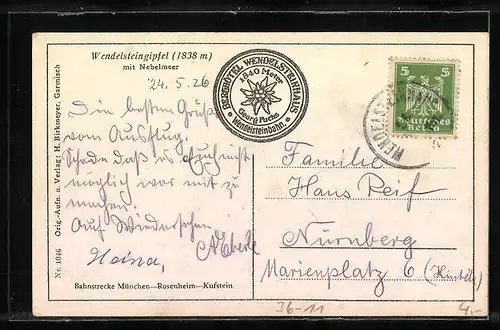 Wendelsteingipfel (1838 m)
mit Nebelmeer
24.5.26
Die besten Grüße
vom Ausflug.
Schade daß es Euch nicht
möglich war mit zu
machen.
Auf Wiedersehen
BERGHOTEL WENDELSTEINHAUS
1840 Meter
Georg Fuchs
Wendelsteinbahn.
5 5
Deutsches
Reich
WENDELST
Familie
Hans Reif
Nürnberg
Marienplatz 6
Bahnstrecke München—Rosenheim—Kufstein
Nr. 1046 Orig.-Aufn. u. Verlag: H. Birkmeyer, Garmisch
36-11
4,-